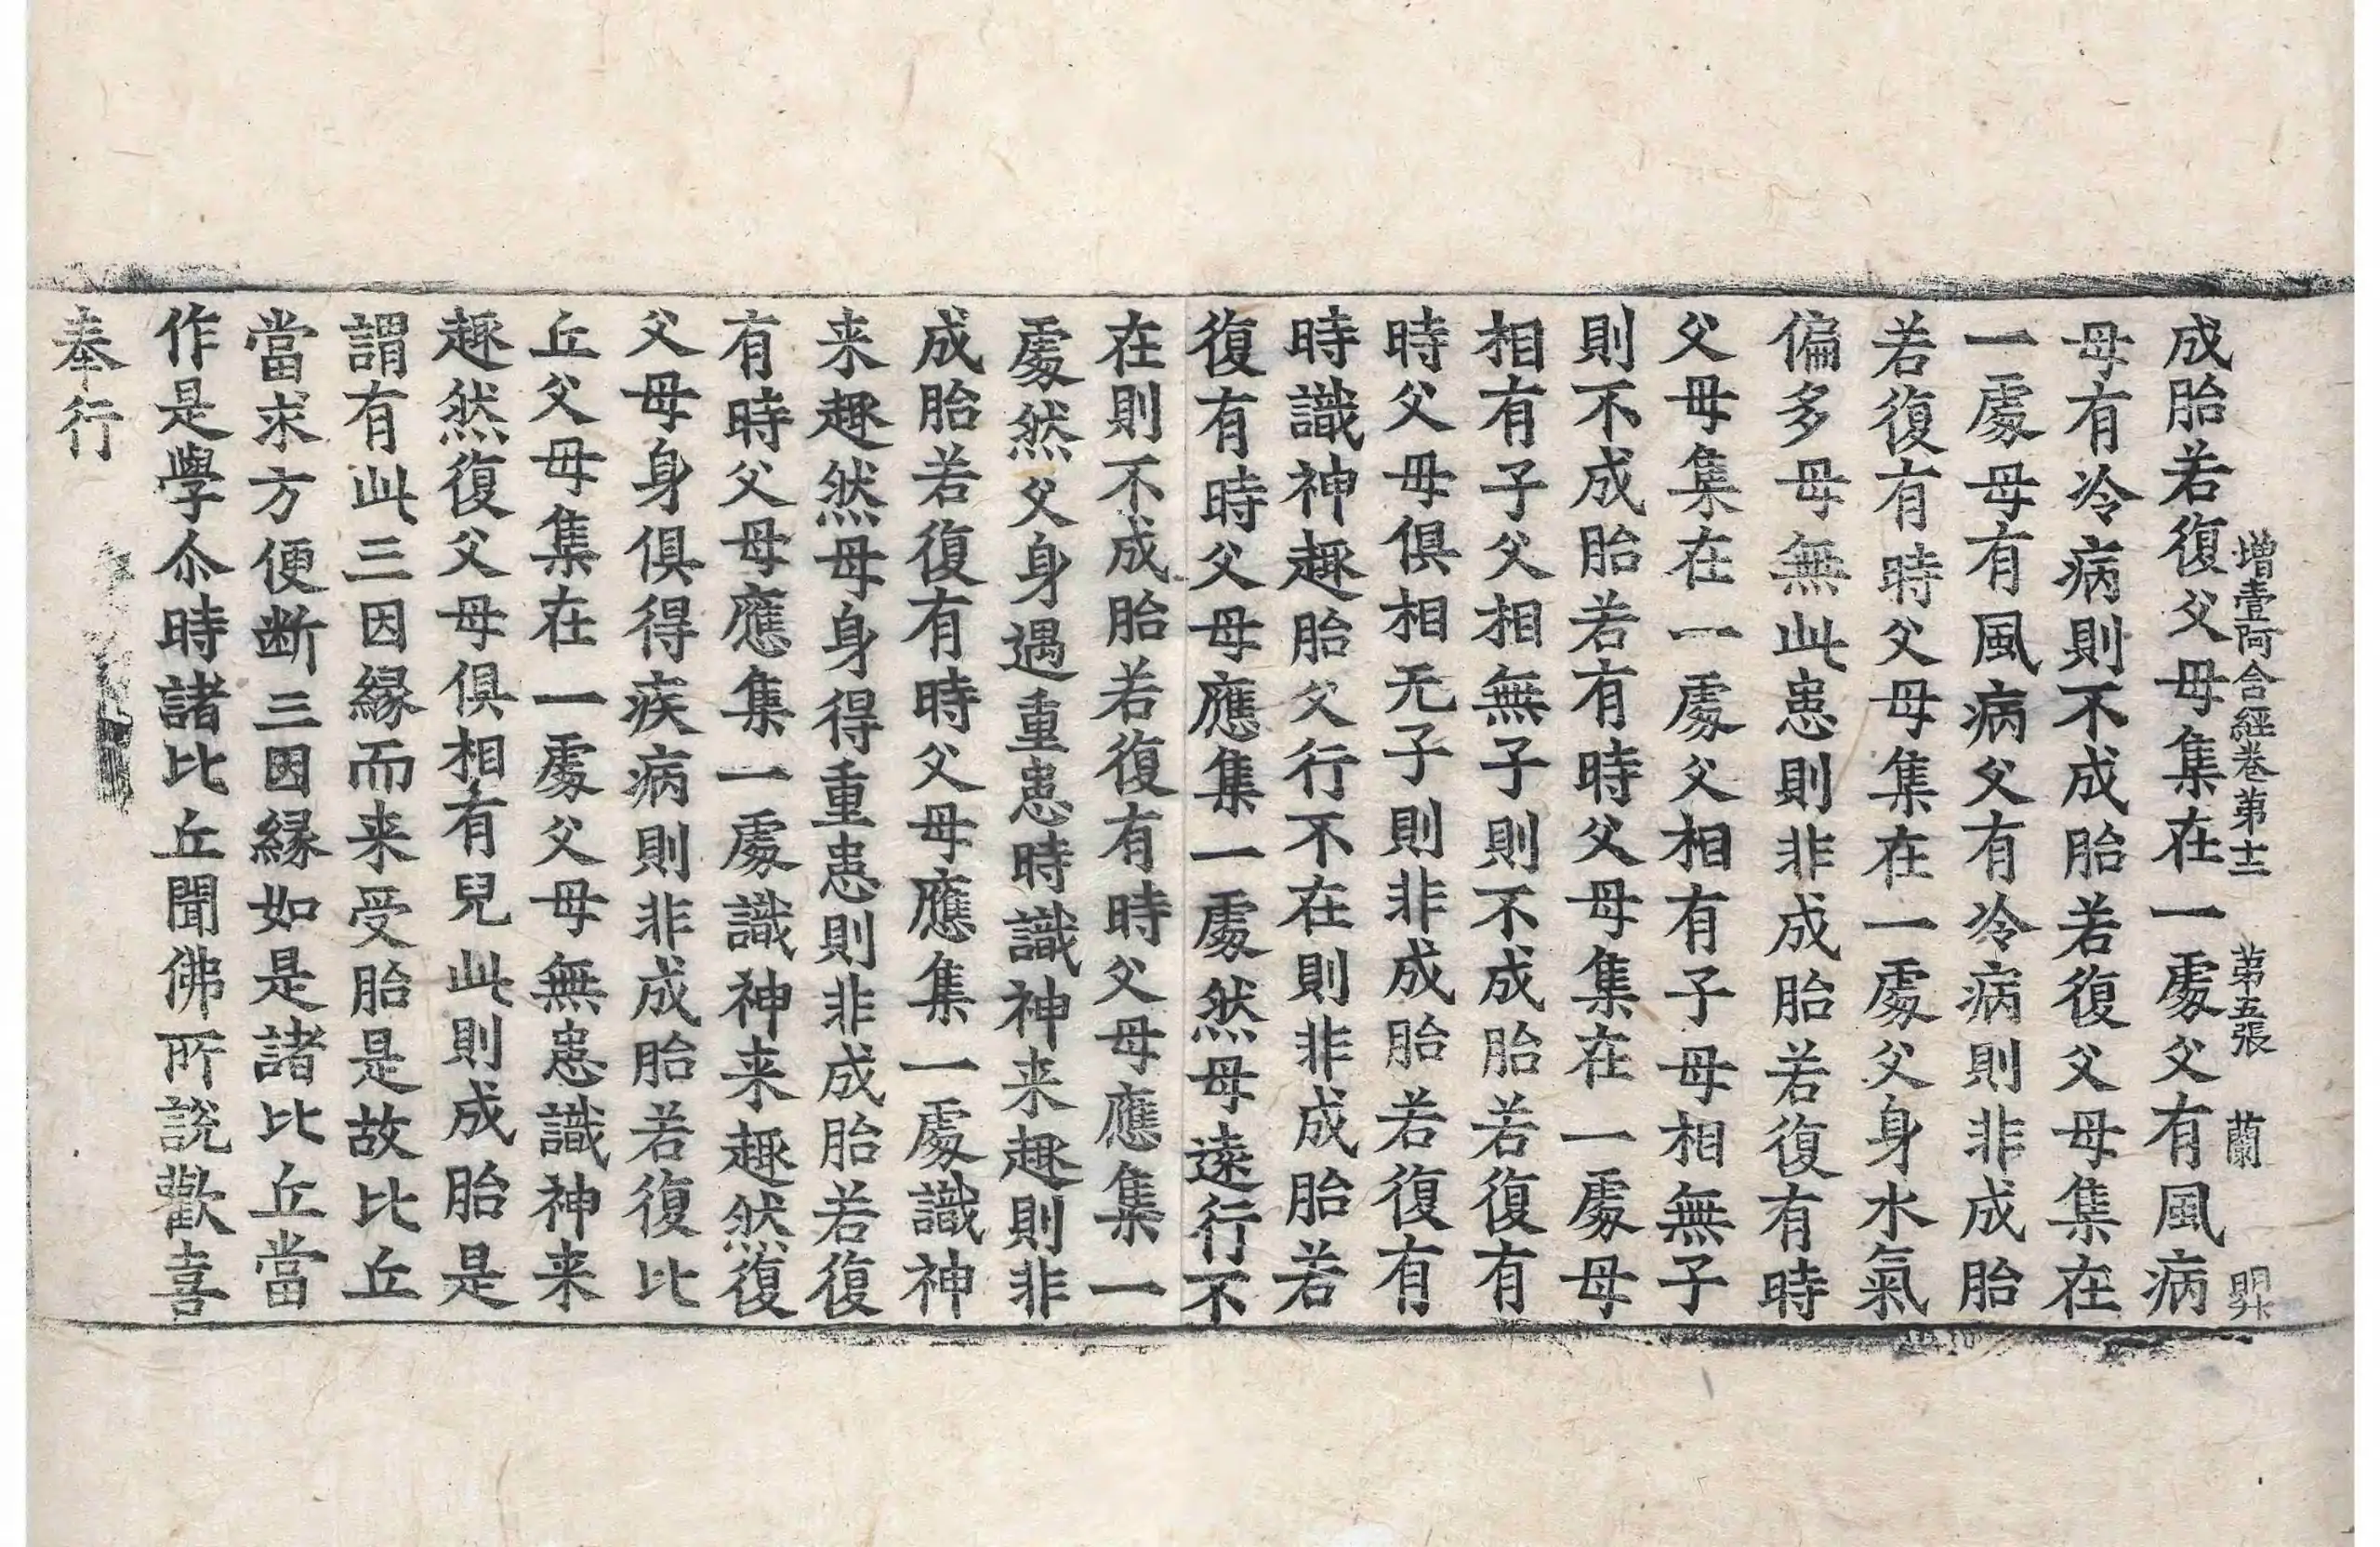 增壹阿含經卷第十二 第五張 蘭
成胎若復父母集在一處父有風病
母有冷病則不成胎若復父母集在
一處母有風病父有冷病則非成胎
若復有時父母集在一處父身水氣
偏多母無此患則非成胎若復有時
父母集在一處父相有子母相無子
則不成胎若有時父母集在一處母
相有子父相無子則不成胎若復有
時父母俱相无子則非成胎若復有
時識神趣胎父行不在則非成胎若
復有時父母應集一處然母遠行不
在則不成胎若復有時父母應集一
處然父身遇重患時識神来趣則非
成胎若復有時父母應集一處識神
来趣然母身得重患則非成胎若復
有時父母應集一處識神来趣然復
父母身俱得疾病則非成胎若復比
丘父母集在一處父母無患識神来
趣然復父母俱相有兒此則成胎是
謂有此三因緣而来受胎是故比丘
當求方便断三因緣如是諸比丘當
作是學尒時諸比丘聞佛所說歡喜
奉行